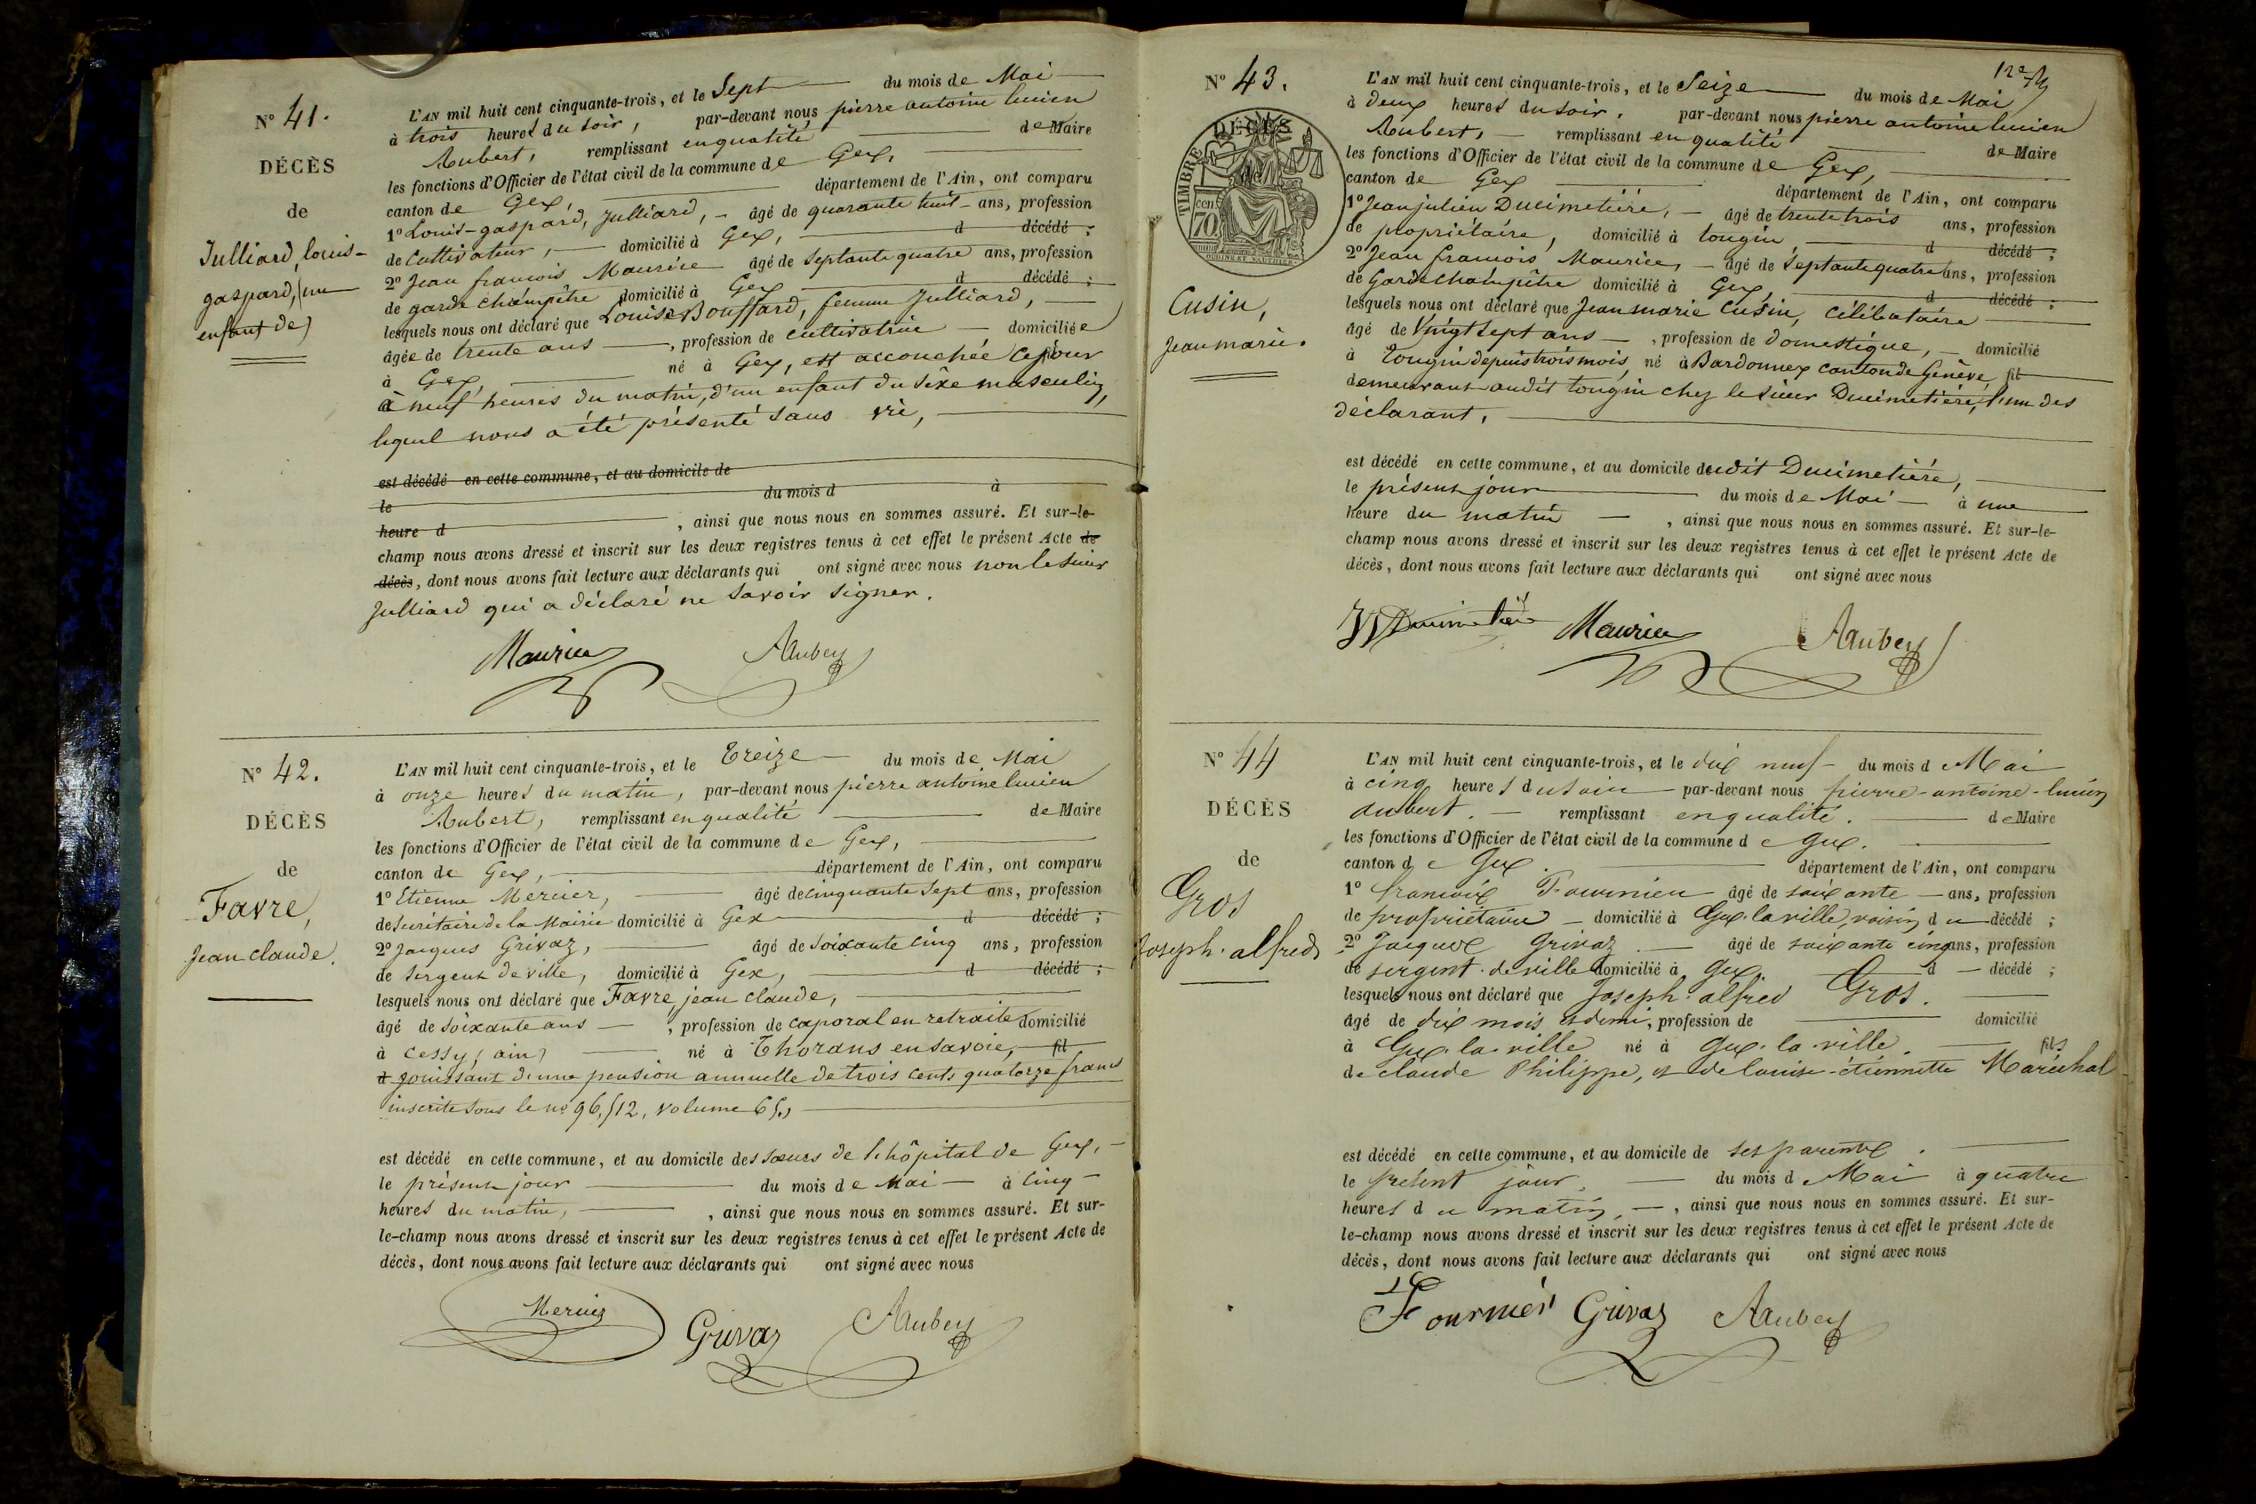 N° 41.
DÉCÈS
de
Julliard, louis-
gaspard, (un
enfant de)
L'AN mil huit cent cinquante-trois, et le Sept du mois de Mai
à trois heures du soir, par-devant nous pierre antoine lucien
Aubert, remplissant en qualité de Maire
les fonctions d'Officier de l'état civil de la commune de Gex,
canton de Gex, département de l'Ain, ont comparu
1° Louis-gaspard, Julliard, âgé de quarante huit ans, profession
de Cultivateur, domicilié à Gex, d décédé ;
2° Jean francois Maurice âgé de Septante quatre ans, profession
de garde champêtre domicilié à Gex d décédé ;
lesquels nous ont déclaré que Louise Bouffard, femme Julliard,
âgée de trente ans , profession de cultivatrice domiciliée
à Gex, né à Gex, est accouchée cejour
à neuf heures du matin, d'un enfant du Sexe masculin,
lequel nous a été présenté sans vie,
est décédé en cette commune, et au domicile de
le du mois d à
heure d , ainsi que nous nous en sommes assuré. Et sur-le-
champ nous avons dressé et inscrit sur les deux registres tenus à cet effet le présent Acte de
décès, dont nous avons fait lecture aux déclarants qui ont signé avec nous non le sieur
Julliard qui a déclaré ne savoir signer.
Maurice Aubert
N° 42.
DÉCÈS
de
Favre,
Jean claude.
L'AN mil huit cent cinquante-trois, et le Treize du mois de Mai
à onze heures du matin, par-devant nous pierre antoine lucien
Aubert, remplissant en qualité de Maire
les fonctions d'Officier de l'état civil de la commune de Gex,
canton de Gex, département de l'Ain, ont comparu
1° Etienne Mercier, âgé de cinquante Sept ans, profession
de Secrétaire de la Mairie domicilié à Gex d décédé ;
2° Jacques Grivaz, âgé de Soixante Cinq ans, profession
de Sergent de ville, domicilié à Gex, d décédé ;
lesquels nous ont déclaré que Favre, jean claude,
âgé de Soixante ans , profession de Caporal en retraite domicilié
à Cessy (ain) né à Thorans en Savoie, fil
d jouissant d'une pension annuelle de trois cents quatorze francs
inscrite sous le n° 96,512, volume 65,
est décédé en cette commune, et au domicile des Sœurs de l'hôpital de Gex,
le présent jour du mois de Mai à Cinq
heures du matin, , ainsi que nous nous en sommes assuré. Et sur-
le-champ nous avons dressé et inscrit sur les deux registres tenus à cet effet le présent Acte de
décès, dont nous avons fait lecture aux déclarants qui ont signé avec nous
Mercier Grivaz Aubert
N° 43.
TIMBRE
DÉCÈS
70
Cusin,
Jean marie.
L'AN mil huit cent cinquante-trois, et le Seize du mois de Mai
à deux heures du soir, par-devant nous pierre antoine lucien
Aubert, remplissant en qualité de Maire
les fonctions d'Officier de l'état civil de la commune de Gex,
canton de Gex département de l'Ain, ont comparu
1° Jean julien Ducimetière, âgé de trente trois ans, profession
de propriétaire, domicilié à tougin, d décédé ;
2° Jean francois Maurice, âgé de Septante quatre ans, profession
de Garde champêtre domicilié à Gex, d décédé ;
lesquels nous ont déclaré que Jean marie Cusin, célibataire
âgé de Vingt Sept ans , profession de domestique, domicilié
à Tougin depuis trois mois, né à Bardonnex canton de Genève, fil
demeurant audit tougin chez le sieur Ducimetière, l'un des
déclarant,
est décédé en cette commune, et au domicile dudit Ducimetière,
le présent jour du mois de Mai à une
heure du matin , ainsi que nous nous en sommes assuré. Et sur-le-
champ nous avons dressé et inscrit sur les deux registres tenus à cet effet le présent Acte de
décès, dont nous avons fait lecture aux déclarants qui ont signé avec nous
Ducimetière Maurice Aubert
N° 44
DÉCÈS
de
Gros
Joseph-alfred
L'AN mil huit cent cinquante-trois, et le dix neuf du mois de Mai
à cinq heures du soir par-devant nous pierre-antoine-lucien
aubert. remplissant en qualité. de Maire
les fonctions d'Officier de l'état civil de la commune de Gex.
canton de Gex. département de l'Ain, ont comparu
1° francoix Fournier âgé de soixante ans, profession
de propriétaire domicilié à Gex-la ville, voisin du décédé ;
2° Jacques Grivaz âgé de soixante cinq ans, profession
de sergent de ville domicilié à Gex. d décédé ;
lesquels nous ont déclaré que Joseph-alfred Gros.
âgé de dix mois et demi, profession de domicilié
à Gex-la-ville né à Gex-la-ville. fils
de claude Philippe, et de louise-étiennette Maréchal
est décédé en cette commune, et au domicile de ses parents.
le présent jour, du mois de Mai à quatre
heures du matin, , ainsi que nous nous en sommes assuré. Et sur-
le-champ nous avons dressé et inscrit sur les deux registres tenus à cet effet le présent Acte de
décès, dont nous avons fait lecture aux déclarants qui ont signé avec nous
Fournier Grivaz Aubert